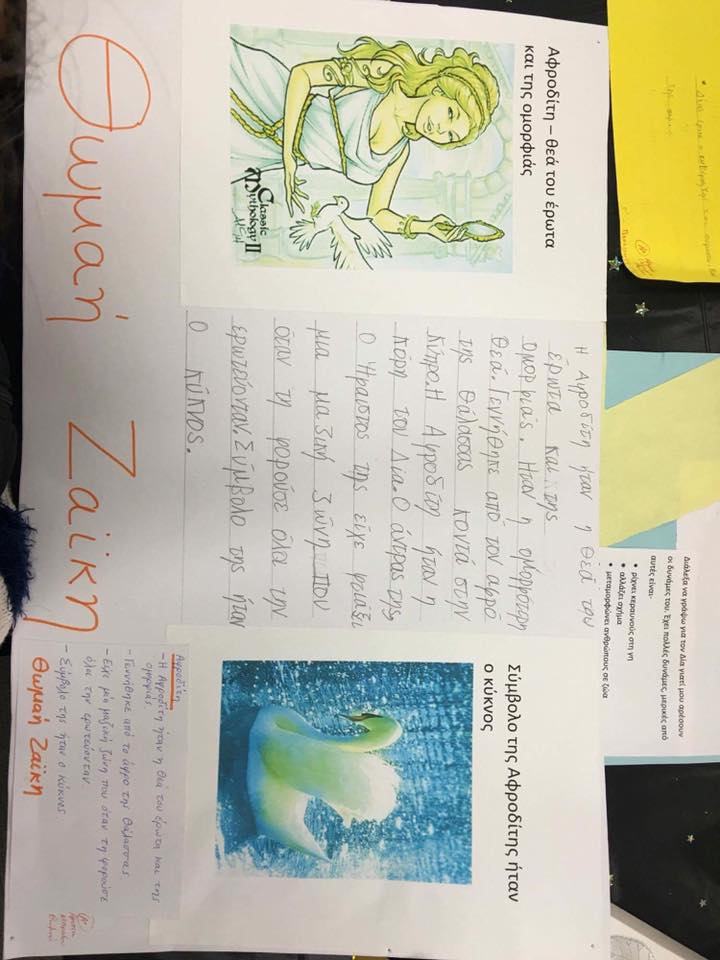 Αφροδίτη – θεά του έρωτα
και της ομορφιάς
Classic
Mythology II
Η Αφροδίτη ήταν η θεά του
έρωτα και της
ομορφιάς. Ήταν η ομορφότερη
θεά. Γεννήθηκε από τον αφρό
της θάλασσας κοντά στην
Κύπρο. Η Αφροδίτη ήταν η
κόρη του Δία. Ο άντρας της
ο Ήφαιστος της είχε φτιάξει
μια μαγική ζώνη που
όταν τη φορούσε όλοι την
ερωτεύονταν. Σύμβολο της ήταν
ο κύκνος.
Σύμβολο της Αφροδίτης ήταν
ο κύκνος
Αφροδίτη
- Η Αφροδίτη ήταν η θεά του έρωτα και της
ομορφιάς.
- Γεννήθηκε από το αφρό της θάλασσας
- Είχε μία μαγική ζώνη που όταν τη φορούσε
όλοι την ερωτεύονταν.
- Σύμβολο της ήταν ο κύκνος
Θωμαή Ζαΐκη
Θωμαή Ζαΐκη
Διάλεξα να γράψω για τον Δία γιατί μου αρέσουν
οι δυνάμεις του. Έχει πολλές δυνάμεις, μερικές από
αυτές είναι-
• ρίχνει κεραυνούς στη γη
• αλλάζει σχήμα
• μεταμορφώνει ανθρώπους σε ζώα